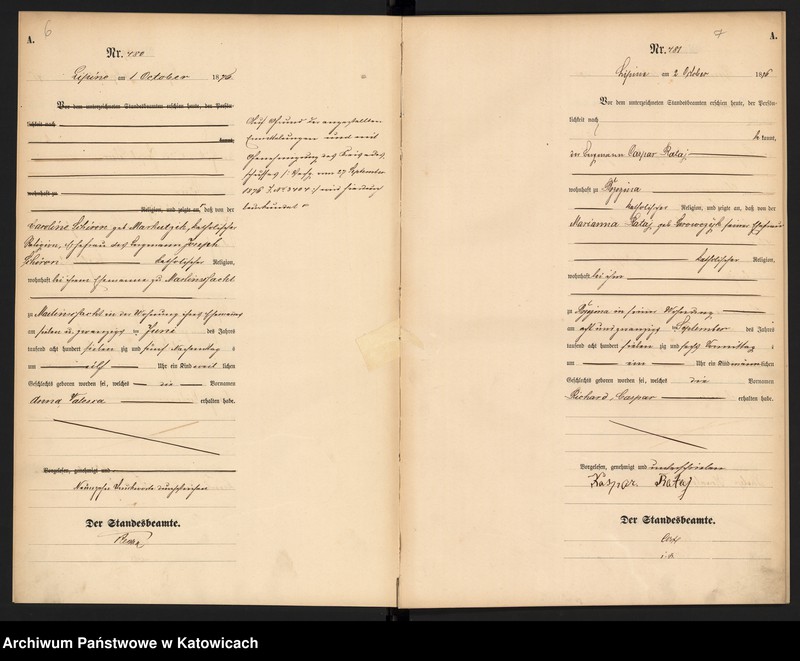 6
A.
Nr. 480
Lipine am 1 October 1876
Vor dem unterzeichneten Standesbeamten erschien heute, der Persön-
lichkeit nach
kannt,
wohnhaft zu
Religion, und zeigte an, daß von der
Caroline Schiron geb Markulzik, katholischer
Religion, Ehefrau des Bergmann Joseph
Schiron katholischer Religion,
wohnhaft bei ihrem Ehemanne zu Martinschacht
zu Martinschacht in der Wohnung ihres Ehemannes
am sieben u. zwanzigsten Juni des Jahres
tausend acht hundert siebenzig und fünf Nachmittag s
um elf Uhr ein Kind weiblichen
Geschlechts geboren worden sei, welches die Vornamen
Anna Valeria erhalten habe.
Vorgelesen, genehmigt und
Neunzehn Druckworte durchstrichen
Der Standesbeamte.
Auf Grund der angestellten
Ermittelungen und mit
Genehmigung des Kreis-Aus-
schusses 27 September
1876 wird hierdurch
beurkundet
7
A.
Nr. 481
Lipine am 2 October 1876
Vor dem unterzeichneten Standesbeamten erschien heute, der Persön-
lichkeit nach
be kannt,
der Bergmann Caspar Rataj
wohnhaft zu
katholischer Religion, und zeigte an, daß von der
Marianna Rataj geb seiner Ehefrau
katholischer Religion,
wohnhaft bei ihm
zu in seiner Wohnung
am acht und zwanzigsten September des Jahres
tausend acht hundert siebenzig und sechs Vormittag s
um ein Uhr ein Kind männlichen
Geschlechts geboren worden sei, welches die Vornamen
Richard, Caspar erhalten habe.
Vorgelesen, genehmigt und unterschrieben
Kaspar Rataj
Der Standesbeamte.
i. V.
Archiwum Państwowe w Katowicach